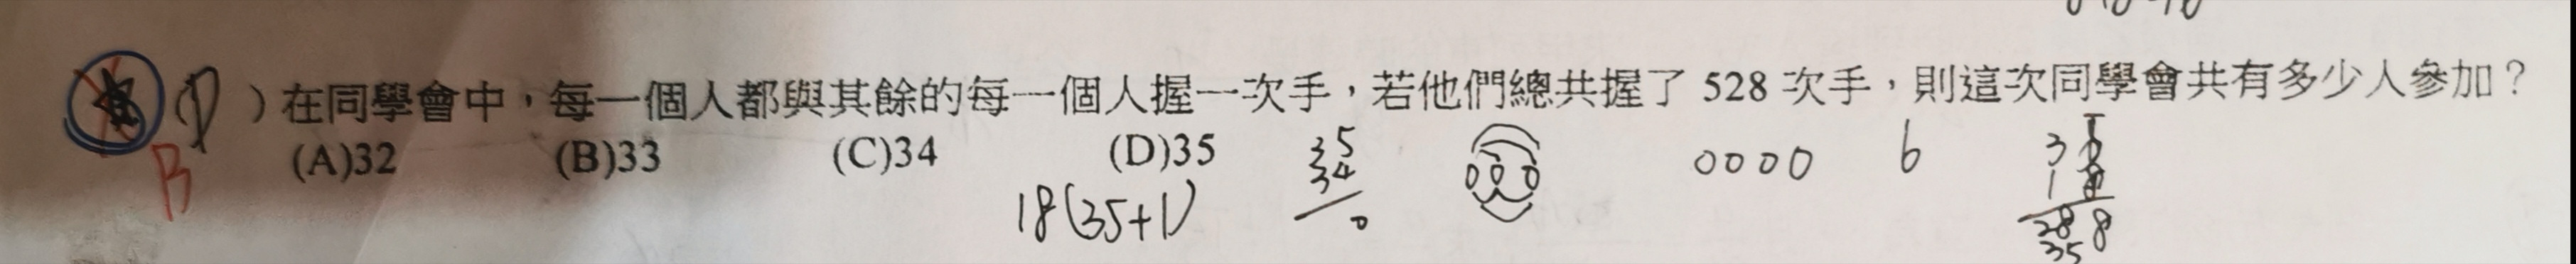 (D) ) 在同學會中，每一個人都與其餘的每一個人握一次手，若他們總共握了 528 次手，則這次同學會共有多少人參加？
B (A)32 (B)33 (C)34 (D)35
35
34
0
0000 6
18(35+1)
288
35